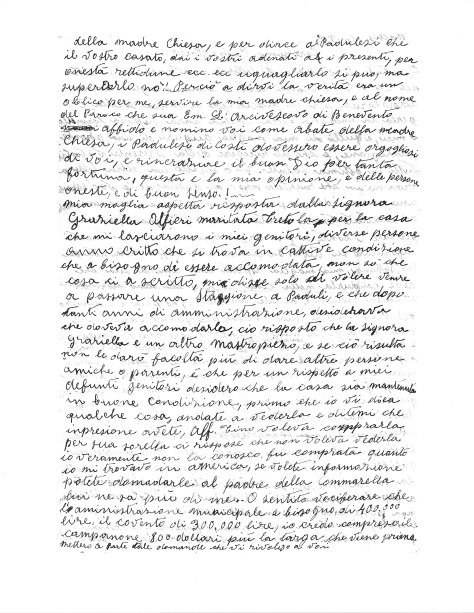 della madre Chiesa, e per dirce a Padulesi che
il vostro casato, dai i vostri adenati ai i presenti, per
onestà rettidune ecc ecc uguagliarlo si può, ma
superDarlo no!! Perciò a dirvi la verità era un
oblico per me, servire la mia madre chiesa, e al nome
del Parroco che sua Em. L'Arcivescovo di Benevento
affido e nomino voi come abate della madre
Chiesa, i Padulesi di costi dovessero essere orgogliosi
di voi, e rincraziare il buon Dio per tanta
fortuna, questa è la mia opinione, e delle persone
oneste, e di buon senso!
mia moglia aspetta risposta dalla signora
Graziella Alfieri maritata per la casa
che mi lasciarono i miei genitori, diverse persone
anno critto che si trova in cattive condizione
che a bisogno di essere accomodata, non so che
cosa ci a scritto, mia disse solo di volere venire
a passare una staggione a Paduli, e che dopo
tanti anni di amministrazione, desiderava
che doveva accomodarla, ciò risposto che la signora
Graziella e un altro Mastropiero, e se ciò risulta
non le darò facoltà più di dare altre persone
amiche o parenti, e che per un rispetto a miei
defunti genitori desidero che la casa sia mantenuta
in buone condizione, primo che io vi dica
qualche cosa, andate a vederla e ditemi che
inpresione avete, Alf. voleva comprarla
per sua sorella ci rispose che non voleva vederla
io veramente non la conosco, fu comprata quanto
io mi trovavo in america, se volete informazione
potete domadarle al padre della Commarella
lui ne sà più di me. O sentito vociferare che
l'aministrazione municipale a bisogno, di 400,000
lire, il covento di 300,000 lire, io credo compreso il
campanone, 800 dollari più la targa che viene prima
mettero a parte tale domande che vi rivolgo a voi